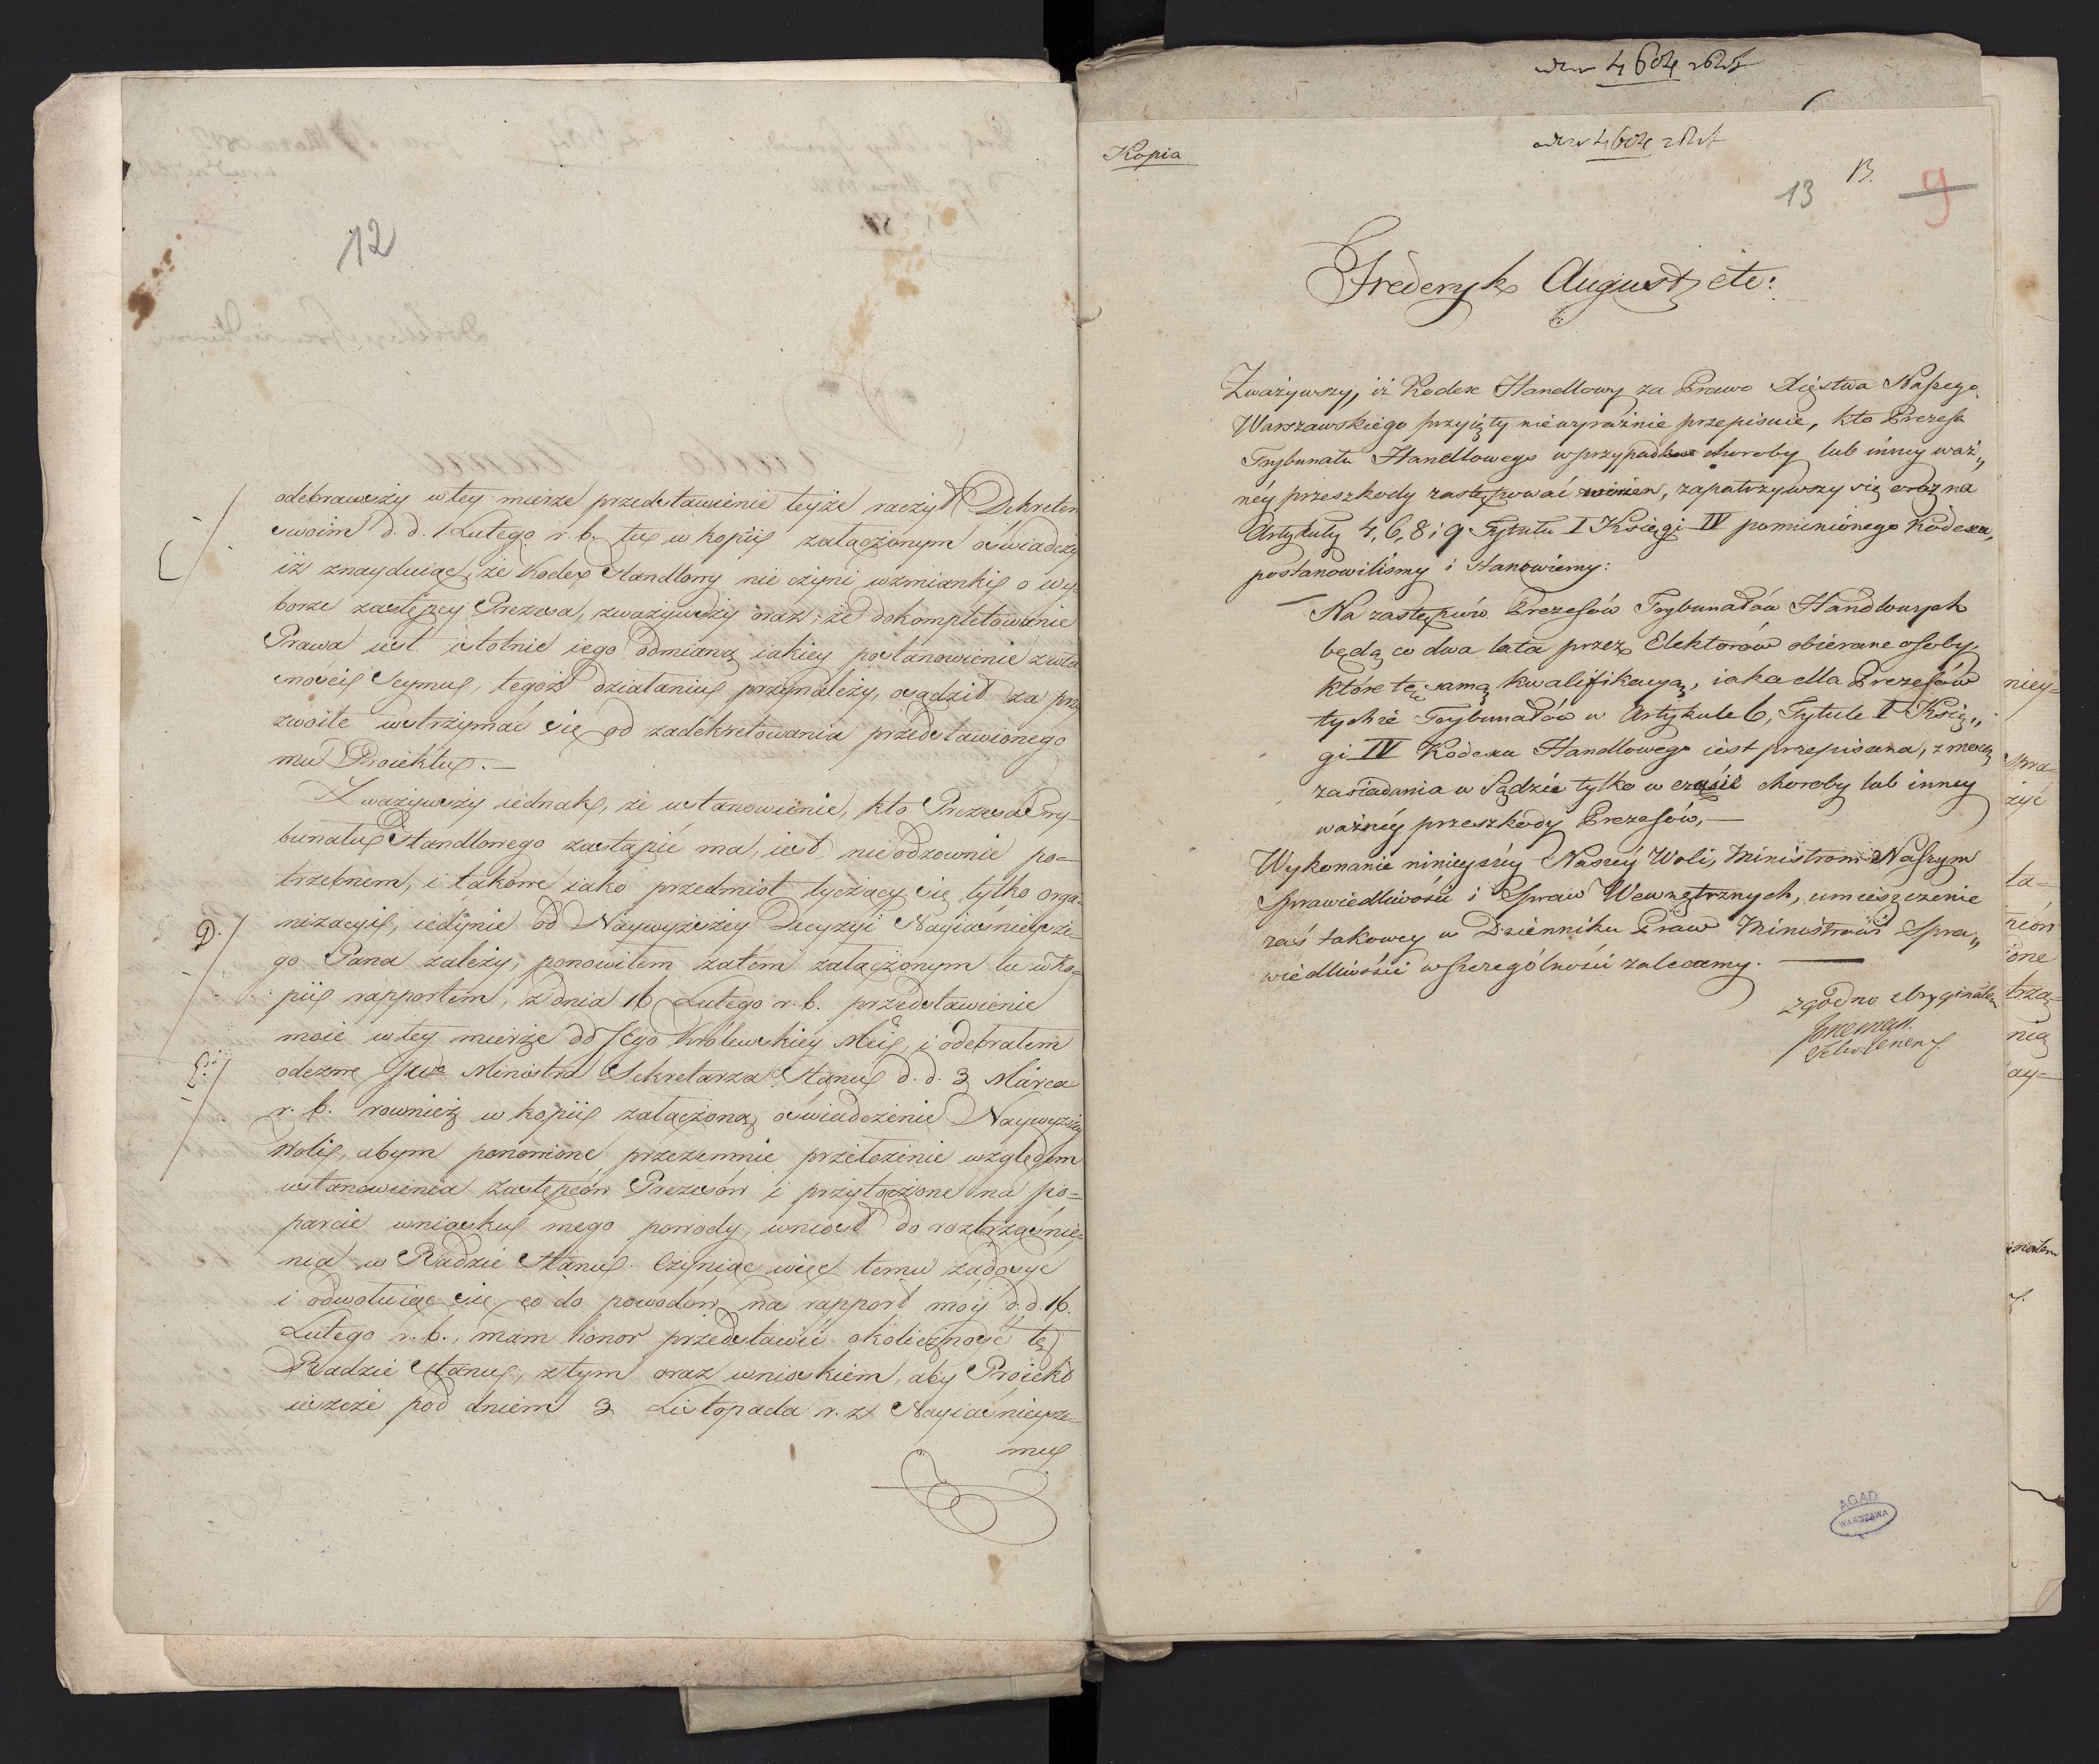 12
odebrawszy w tey mierze przedstawienie teyże raczył Dekretem
swoim d. d. 1 Lutego r. b. tu w kopii załączonym oświadczyć
iż znayduiąc, że Kodex Handlowy nie czyni wzmianki o wy-
borze zastępcy Prezesa, zważywszy oraz, że dokompletowanie
Prawa iest istotnie iego odmianą iakiey postanowienie z wła
sności Seymu, tegoż działaniu przynależy, osądził za przy
zwoite wstrzymać się od zadekretowania przedstawionego
mu Proiektu.—
Zważywszy iednak, że ustanowienie, kto Prezesa Try-
bunału Handlowego zastąpić ma, iest nieodzownie po=
trzebnem, i takowe iako przedmiot tyczący się tylko orga-
D. nizacyi, iedynie od Naywyższey Decyzyi Nayiaśnieysze-
go Pana zależy, ponowiłem zatem załączonym tu w ko=
pii rapportem, z dnia 16 Lutego r. b. przedstawienie
moie w tey mierze do Jego Królewskiey Mci, i odebrałem
odezwę JW Ministra Sekretarza Stanu d. d. 3 Marca
r. b. rownież w kopii załączoną oświadczenie Naywyższey
woli, abym ponowione przezemnie przełożenie względem
ustanowienia zastępców Prezesów i przytoczone na po=
parcie wniosku mego powody, wniosł do roztrząśnie-
nia w Radzie Stanu. Czyniąc więc temu zadosyć
i odwołuiąc się co do powodów na rapport móy d. d. 16.
Lutego r. b., mam honor przedstawić okoliczność tę
Radzie Stanu, z tym oraz wnioskiem, aby Proiekt
ieszcze pod dniem 3 Listopada r. z. Nayiaśnieysze-
mu
Kopia
13 B. 9
Fréderyk August etc:
Zważywszy, iż Kodex Handlowy za Prawo Xięstwa Naszego
Warszawskiego przyięty niewyraźnie przepisuie, kto Prezesa
Trybunału Handlowego w przypadku choroby lub inney waż„
néy przeszkody zastępować winien, zapatrzywszy się oraz na
Artykuły 4, 6, 8 i 9 Tytułu I Księgi IV pomienionego Kodexu,
postanowiliśmy i stanowiemy:
Na zastępców Prezesów Trybunałów Handlowych
będą co dwa lata przez Elektorów obierane osoby,
które tę samą kwalifikacyą, iaka dla Prezesów
tychże Trybunałów w Artykule 6, Tytule I Księ„
gi IV Kodexu Handlowego iest przepisana, z mocą
zasiadania w Sądzie tylko w czasie choroby lub inney
ważnéy przeszkody Prezesów,—
Wykonanie ninieyszéy Naszéy Woli, Ministrom Naszym
Sprawiedliwości i Spraw Wewnętrznych, umieszczenie
zaś takowey w Dzienniku Praw Ministrowi Spra„
wiedliwości w szczególności zalecamy.
zgodno z Oryginałem
AGAD
WARSZAWA
niey=
żyć
ta=
one
trzą=
nia
ay=